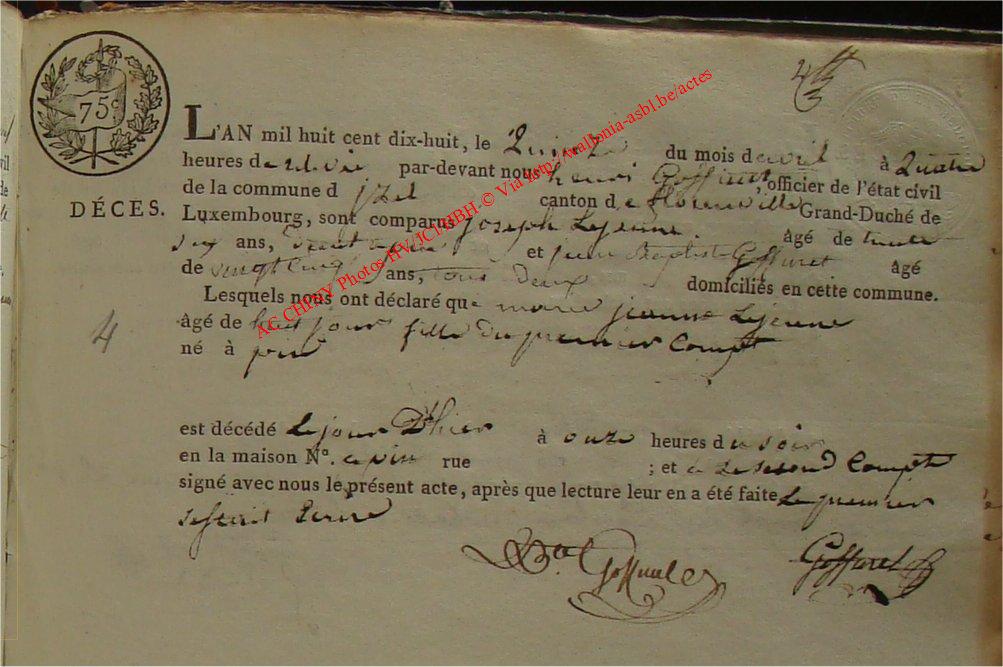 75
L'AN mil huit cent dix-huit, le quinze du mois d'avril à quatre
heures de relevée par-devant nous henri Goffinet, officier de l'état civil
de la commune d izel canton de florenville Grand-Duché de
DÉCES.
Luxembourg, sont comparus joseph Lejeune âgé de trente
six ans, et jean Baptiste Goffinet âgé
de vingt cinq ans, tous deux domiciliés en cette commune.
Lesquels nous ont déclaré que marie jeanne Lejeune
âgé de huit jours fille du premier Compt
4
né à pin
est décédé le jour D'hier à onze heures du soir
en la maison N°. a pin rue ; et a Le second Compt
signé avec nous le présent acte, après que lecture leur en a été faite Le premier
Goffinet
Goffinet
AC CHINY Photos HV/JCM/BH-© Via http://wallonia-asbl.be/actes